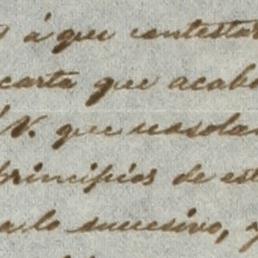 á que contestar
carta que acabo
V. que nosola
principios de est
a lo sucesivo, y